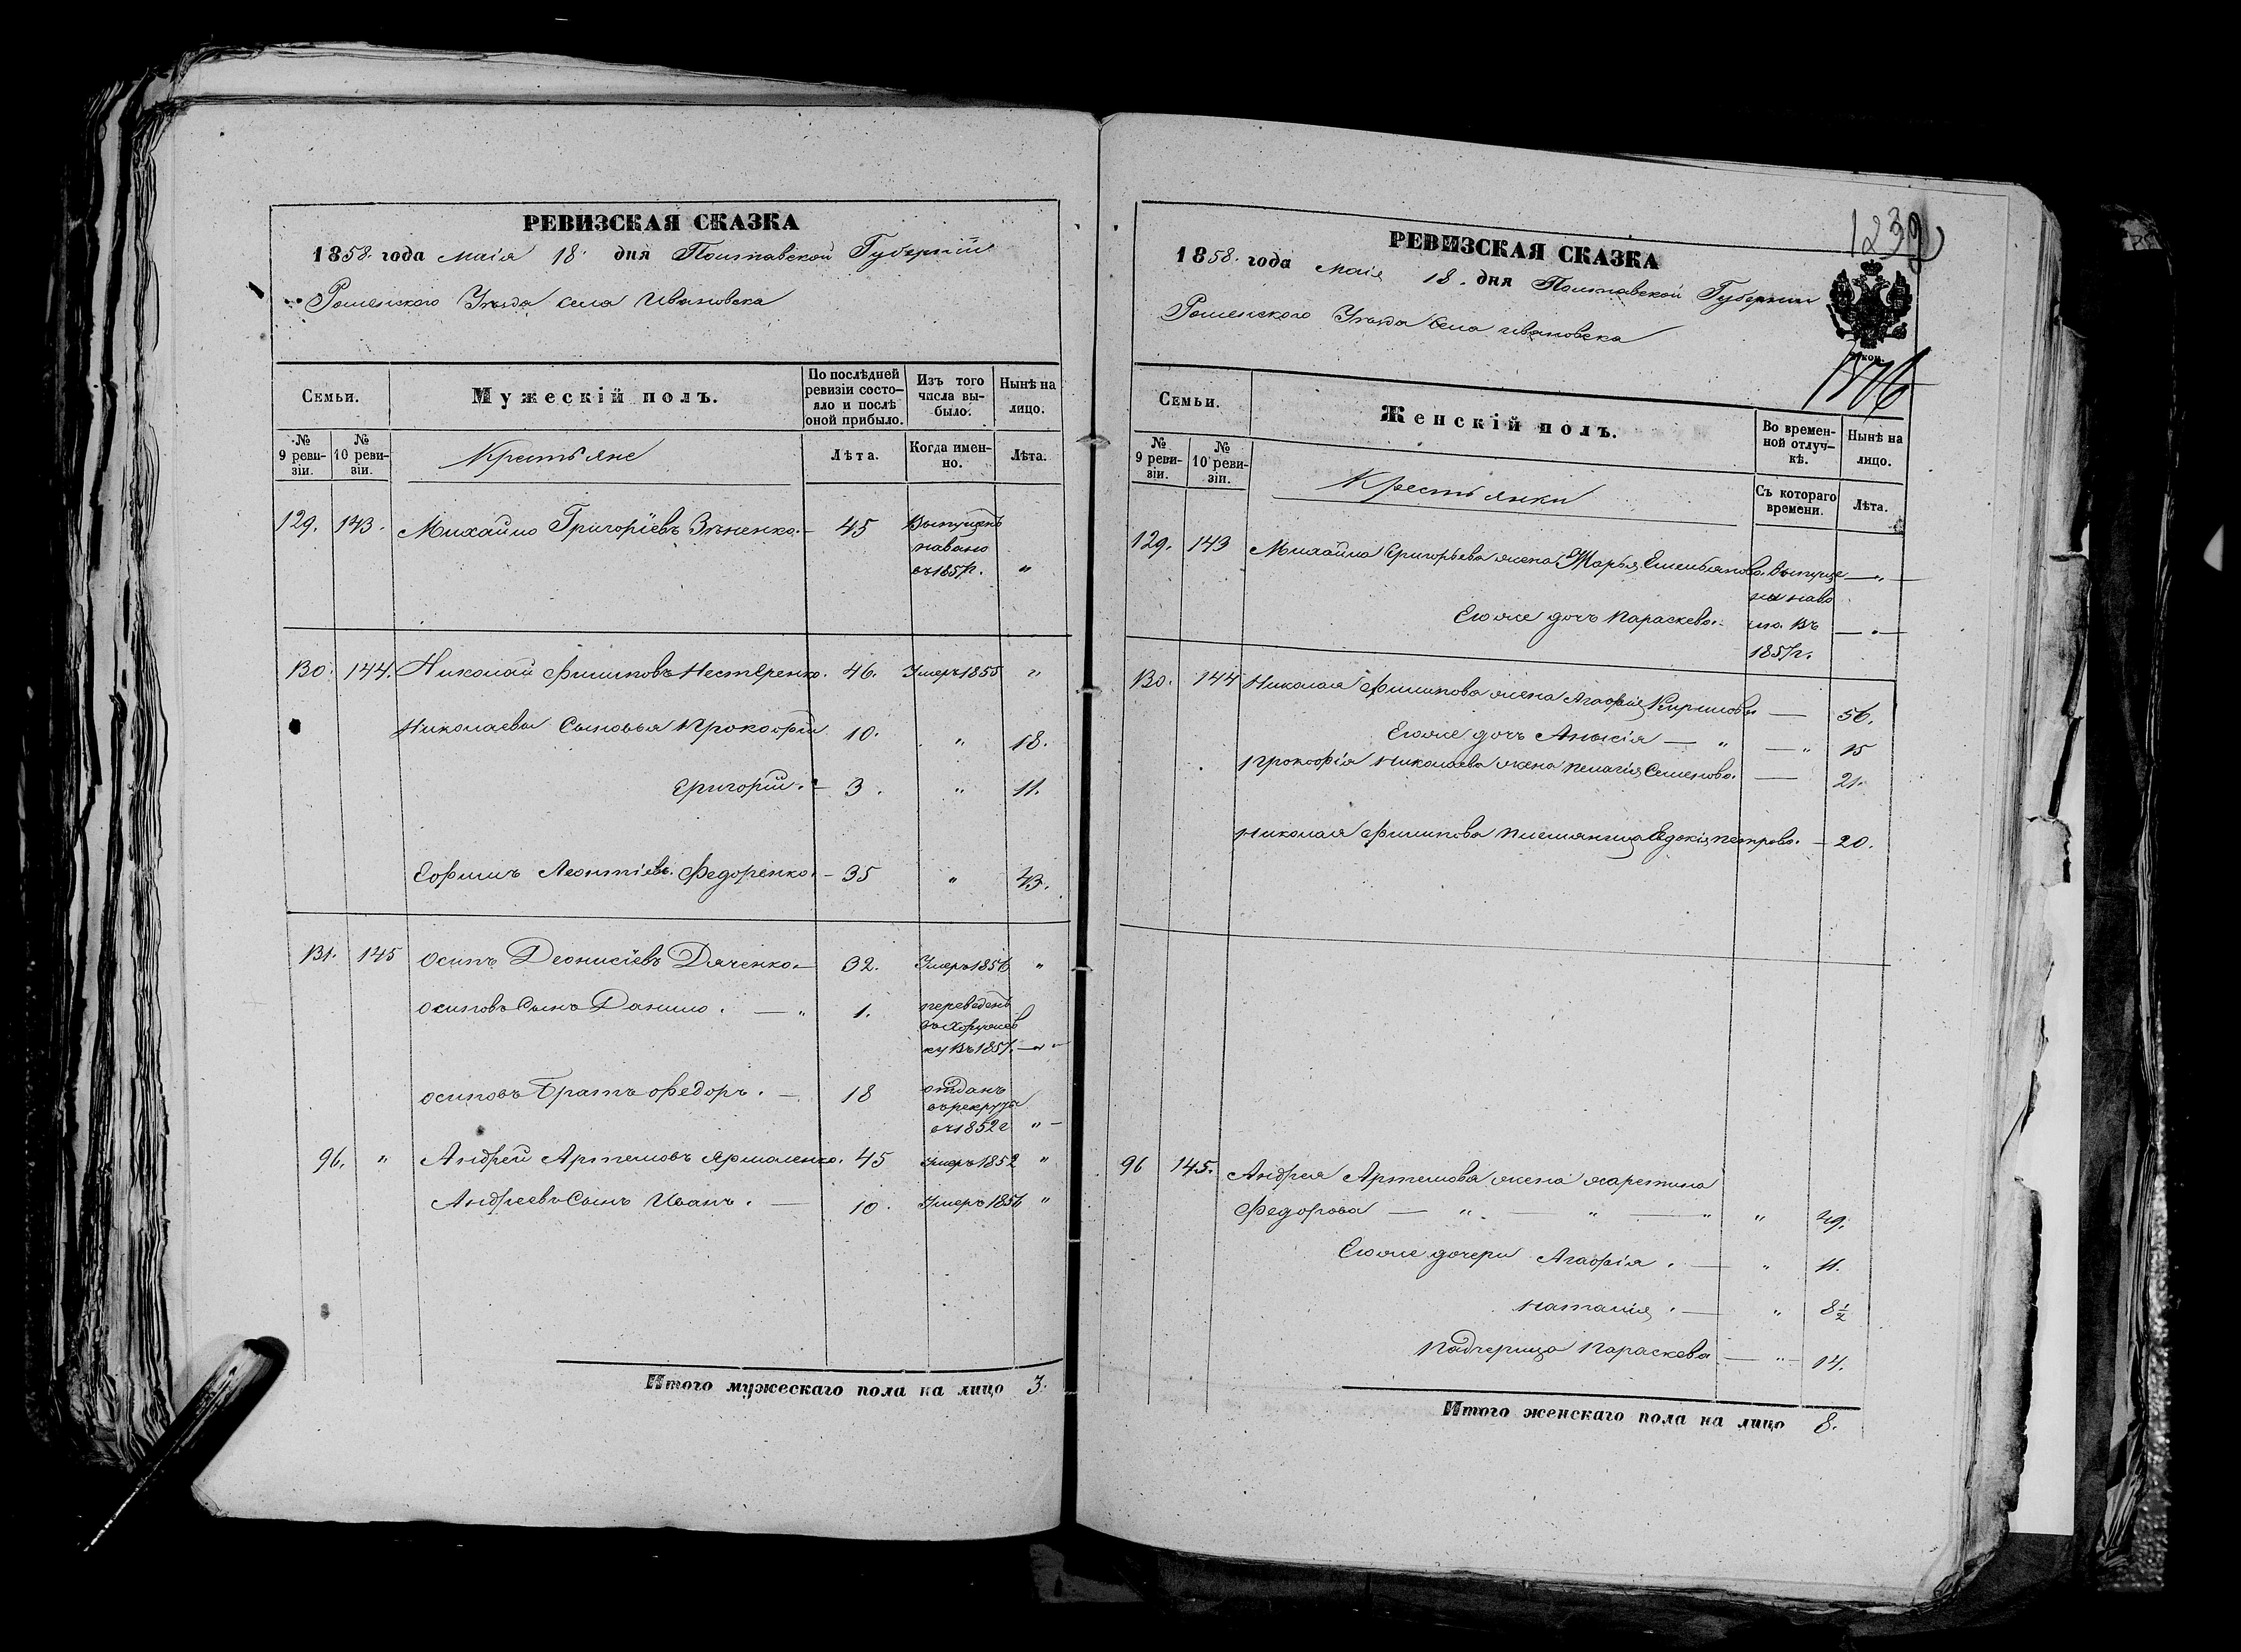 РЕВИЗСКАЯ СКАЗКА
1858. года маія 18. дня Полтавской Губерніи
Роменского Уѣзда села Ивановска
Семьи.
Мужескій полъ.
По послѣдней ревизіи состояло и послѣ оной прибыло.
Изъ того числа выбыло.
Нынѣ на лицо.
№ 9 ревизіи.
№ 10 ревизіи.
Крестьяне
Лѣта.
Когда именно.
Лѣта.
129. 143. Михайло Григоріевъ Зѣненко. — 45 Выпущенъ
на волю
въ 1857г. "
130. 144. Николай Филиповъ Нестеренко. 46. Умеръ 1855 "
Николаевы Сыновья Прокофій 10. " 18.
Григорій. — 3. " 11.
Ефимъ Леонтіевъ Федоренко. — 35 " 43.
131. 145 Осипъ Деонисіевъ Дяченко — 32. Умеръ 1856 "
Осиповъ Сынъ Данило. — " 1. переведенъ
въ Хоружев
ку въ 1857. — "
Осиповъ Братъ Федоръ. — 18 отданъ
въ рекруты
въ 1852г " —
96. " Андрей Артемовъ Ярмоленко. 45 умеръ 1852 "
Андреевъ Сынъ Иванъ. — 10. Умеръ 1856 "
Итого мужескаго пола на лицо 3.
1239
РЕВИЗСКАЯ СКАЗКА
1858. года маія 18. дня Полтавской Губерніи
Роменского Уѣзда села Ивановска
коп.
Семьи.
Женскій полъ.
Во временной отлучкѣ.
Нынѣ на лицо.
№ 9 ревизіи.
№ 10 ревизіи.
Крестьянки
Съ котораго времени.
Лѣта.
129. 143 Михайла Григорьева жена Марья Емельянова. Выпуще — " —
ны на во
Его же дочь Параскева. лю. Въ — " —
1857г.
130. 144 Николая Филипова жена Агафія Кирилова — 56.
Его же дочь Анисія — " — " 15
Прокофія Николаева жена Пелагія Семенова. — 21.
Николая Филипова племянница Евдокія Петрова. — 20.
96 145. Андрея Артемова жена Харитина
Федорова — " — " — " " 49.
Его же дочери Агафія. — " 11.
Наталія. — " 8½
Падчерица Параскева — " — 14.
Итого женскаго пола на лицо 8.